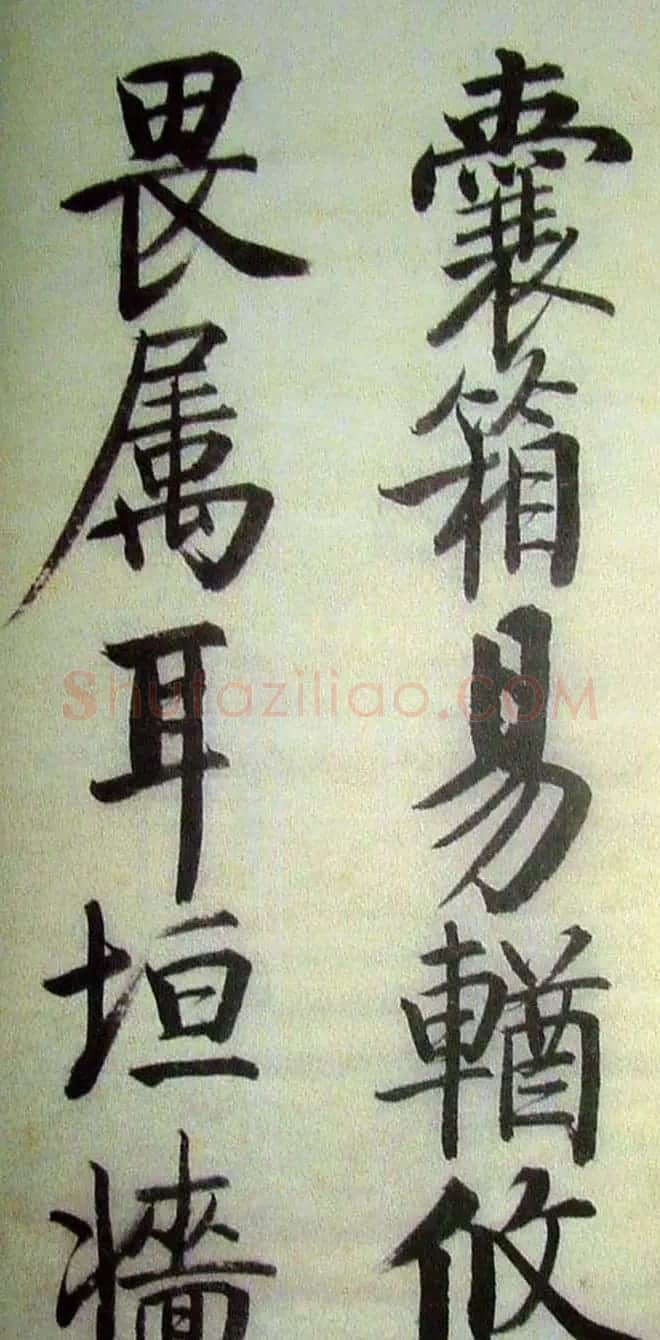 囊箱易輶攸
畏属耳垣牆
Shufaziliao.COM